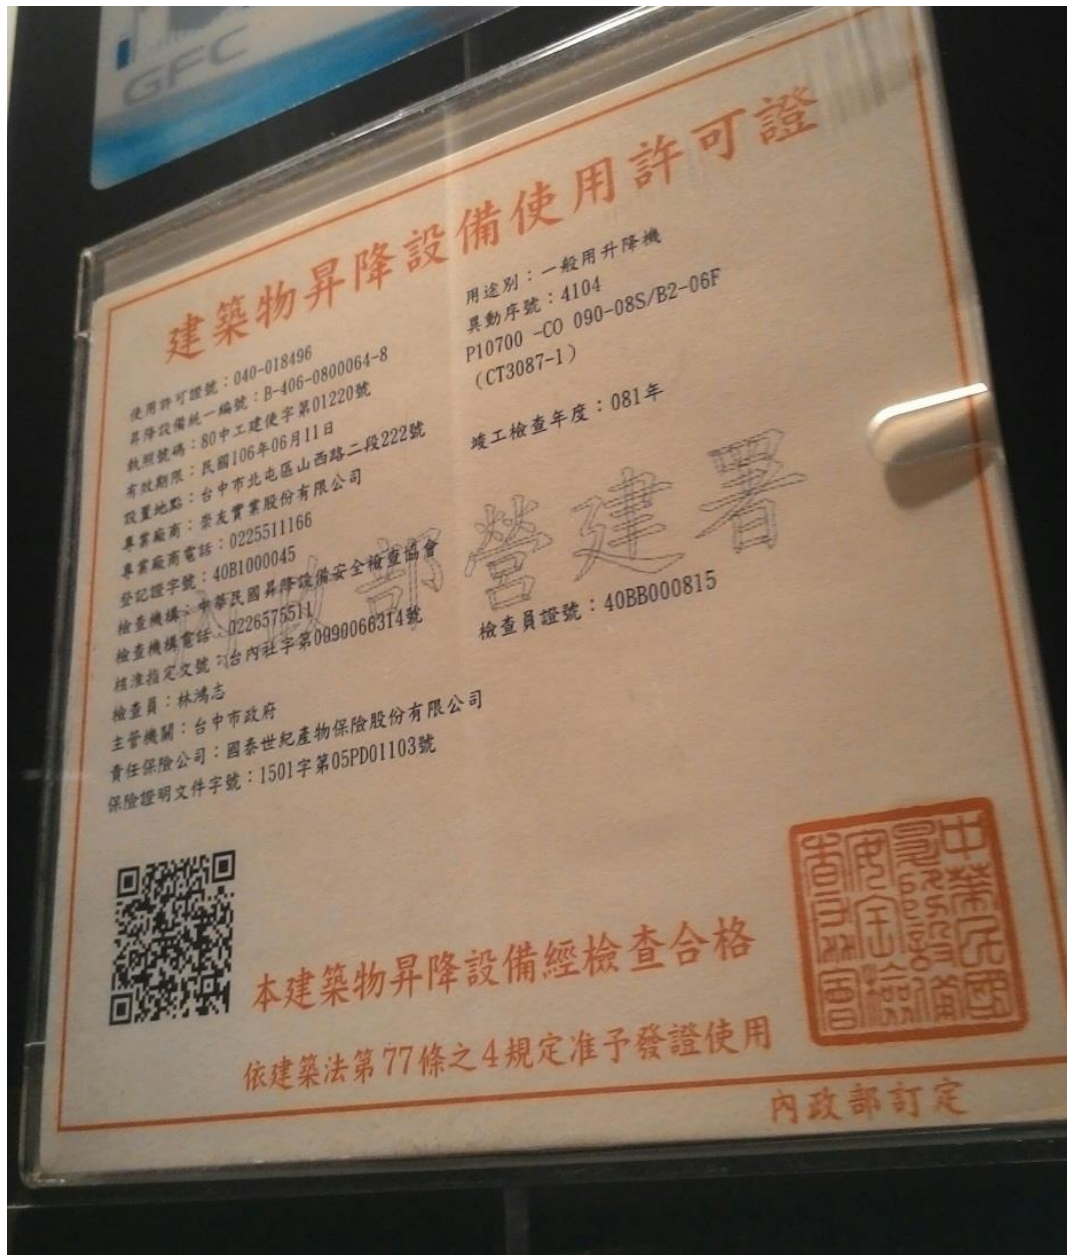 GFC
建築物昇降設備使用許可證
使用許可證號：040-018496
昇降設備統一編號：B-406-0800064-8
執照號碼：80中工建使字第01220號
有效期限：民國106年06月11日
設置地點：台中市北屯區山西路二段222號
專業廠商：崇友實業股份有限公司
專業廠商電話：0225511166
登記證字號：40B1000045
檢查機構：中華民國昇降設備安全檢查協會
檢查機構電話：0226575511
核准指定文號：台內社字第0990066314號
檢查員：林鴻志
主管機關：台中市政府
責任保險公司：國泰世紀產物保險股份有限公司
保險證明文件字號：1501字第05PD01103號
用途別：一般用升降機
異動序號：4104
P10700 -CO 090-08S/B2-06F
(CT3087-1)
竣工檢查年度：081年
檢查員證號：40BB000815
內政部營建署
本建築物昇降設備經檢查合格
依建築法第77條之4規定准予發證使用
中華民國
昇降設備
安全檢
查協會
內政部訂定